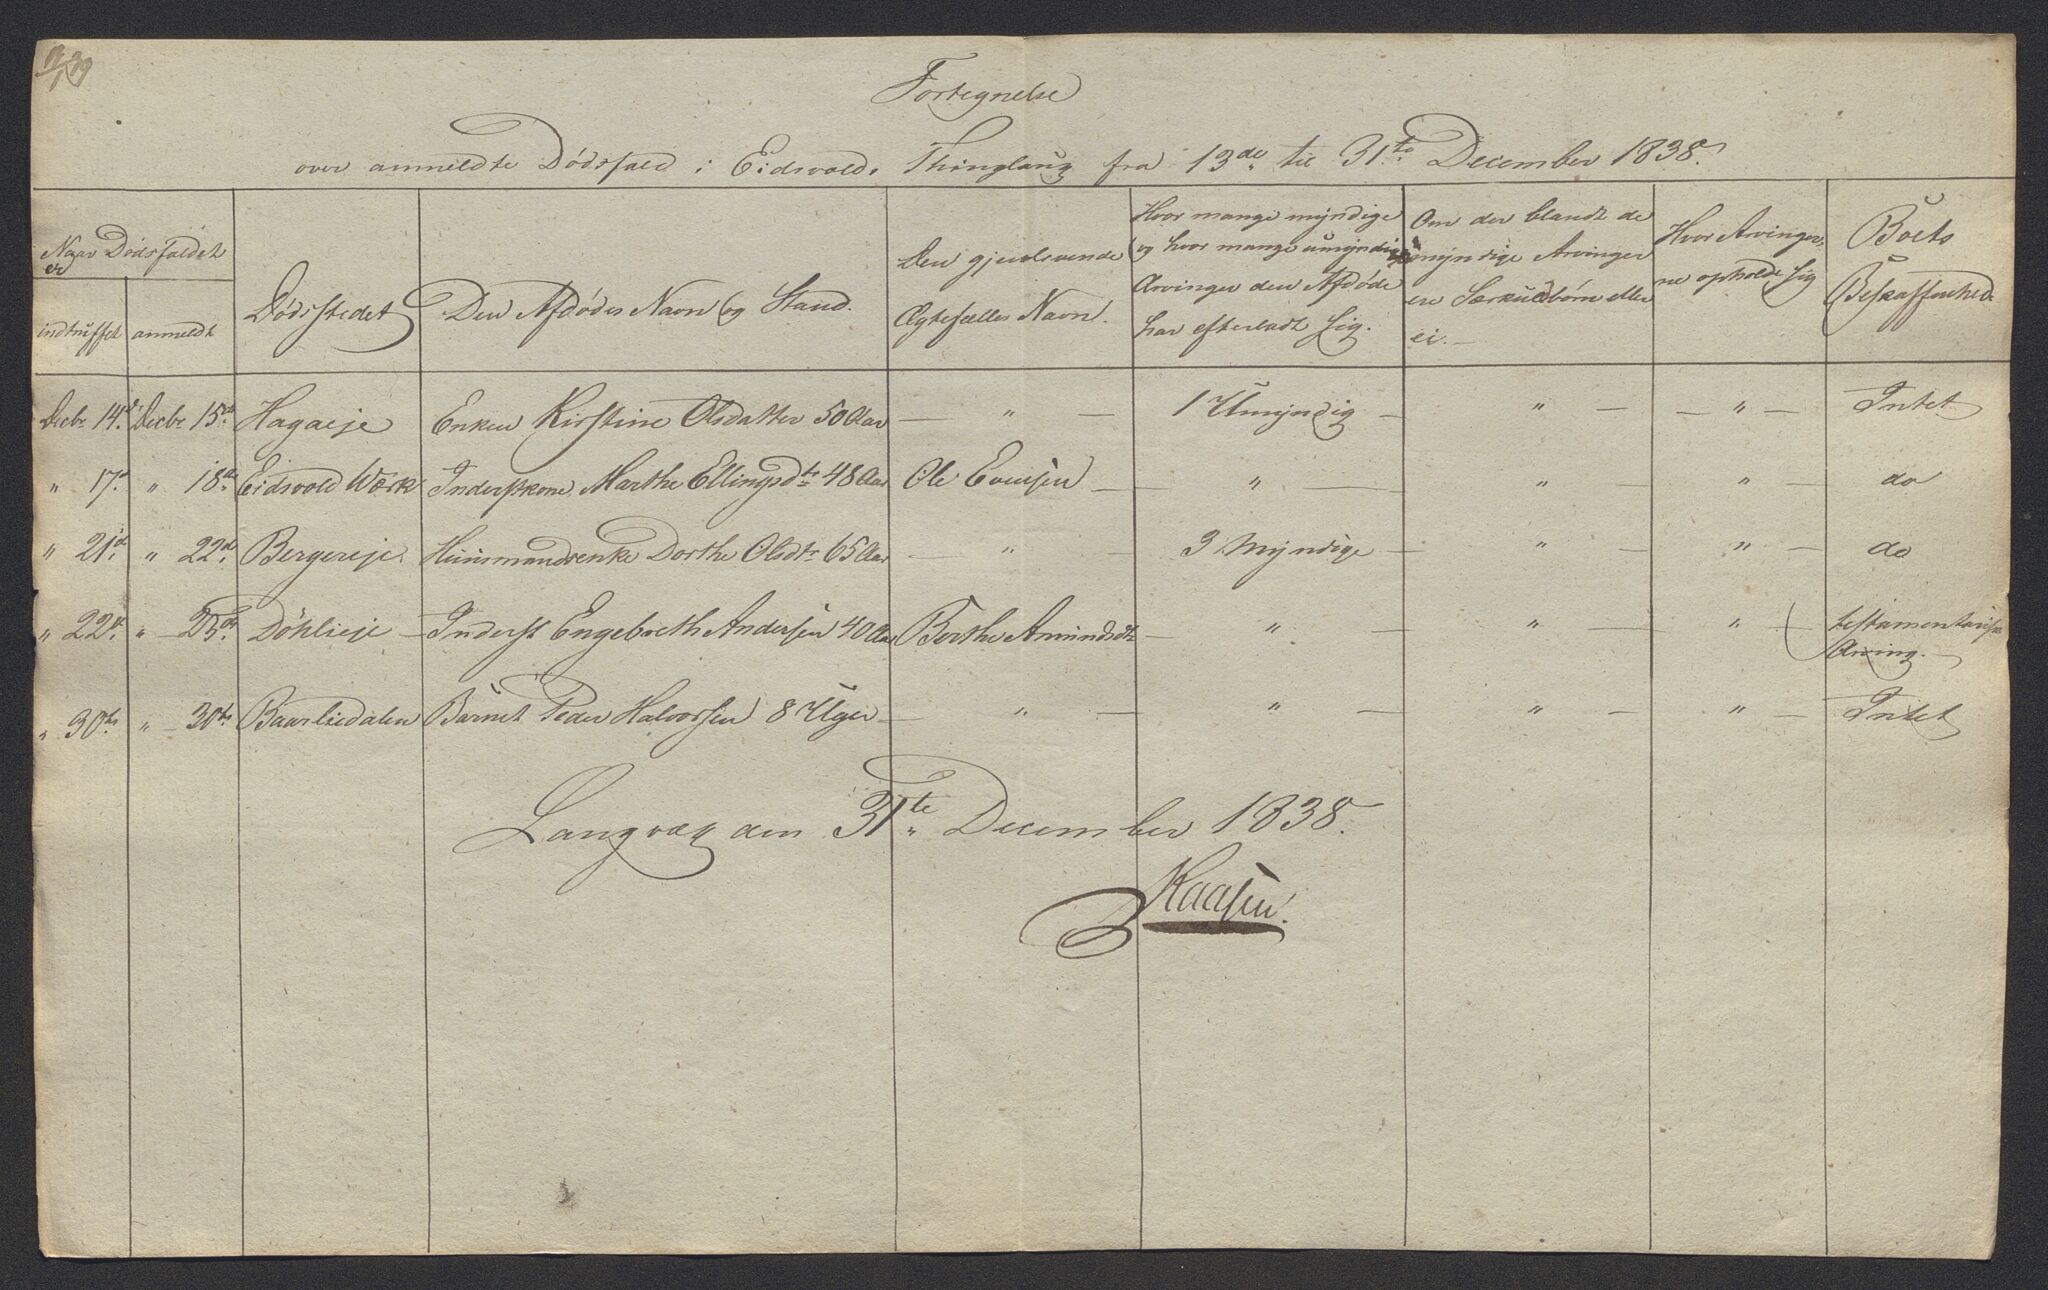 Fortegnelse
over anmeldte Dødsfald i Eidsvolds Thinglaug fra 13de til 31te December 1838.
Naar Dødsfaldet er
indtruffet
anmeldt
Dødsstedet
Den Afdødes Navn og Stand.
Den gjenlevende
Ægtefælles Navn.
Hvor mange myndige
og hvor mange umyndige
Arvinger den Afdøde
har efterladt sig.
Om der blandt de
umyndige Arvinger
ere Særkuldbørn eller
ei. —
Hvor Arvinger,
ne opholde sig
Boets
Beskaffenhed
Decbr 14d. Decbr 15de Hagaeje Enken Kirstine Olsdatter 50 Aar — " — 1 Umyndig — " — — " — Intet
" 17d. " 18de Eidsvold Værk Inderstkone Marthe Ellingsdtr 48 Aar Ole Evensen — — " — " — " — do
" 21d. " 22de. Bergereje Huusmandsenke Dorthe Olsdtr 65 Aar — " — 3 Myndige — " — " — do
" 22d. " — 25de. Döhlieje — Inderst Engebreth Andersen 40 Aar Berthe Amundsdtr — " — " — " — testamentarisk
Arving. —
" 30te " — 30te Baarliedalen Barnet Peder Halvorsen 8 Uger — — " — " — " — " — Intet
Langvæg den 31te December 1838.
Kaasen.